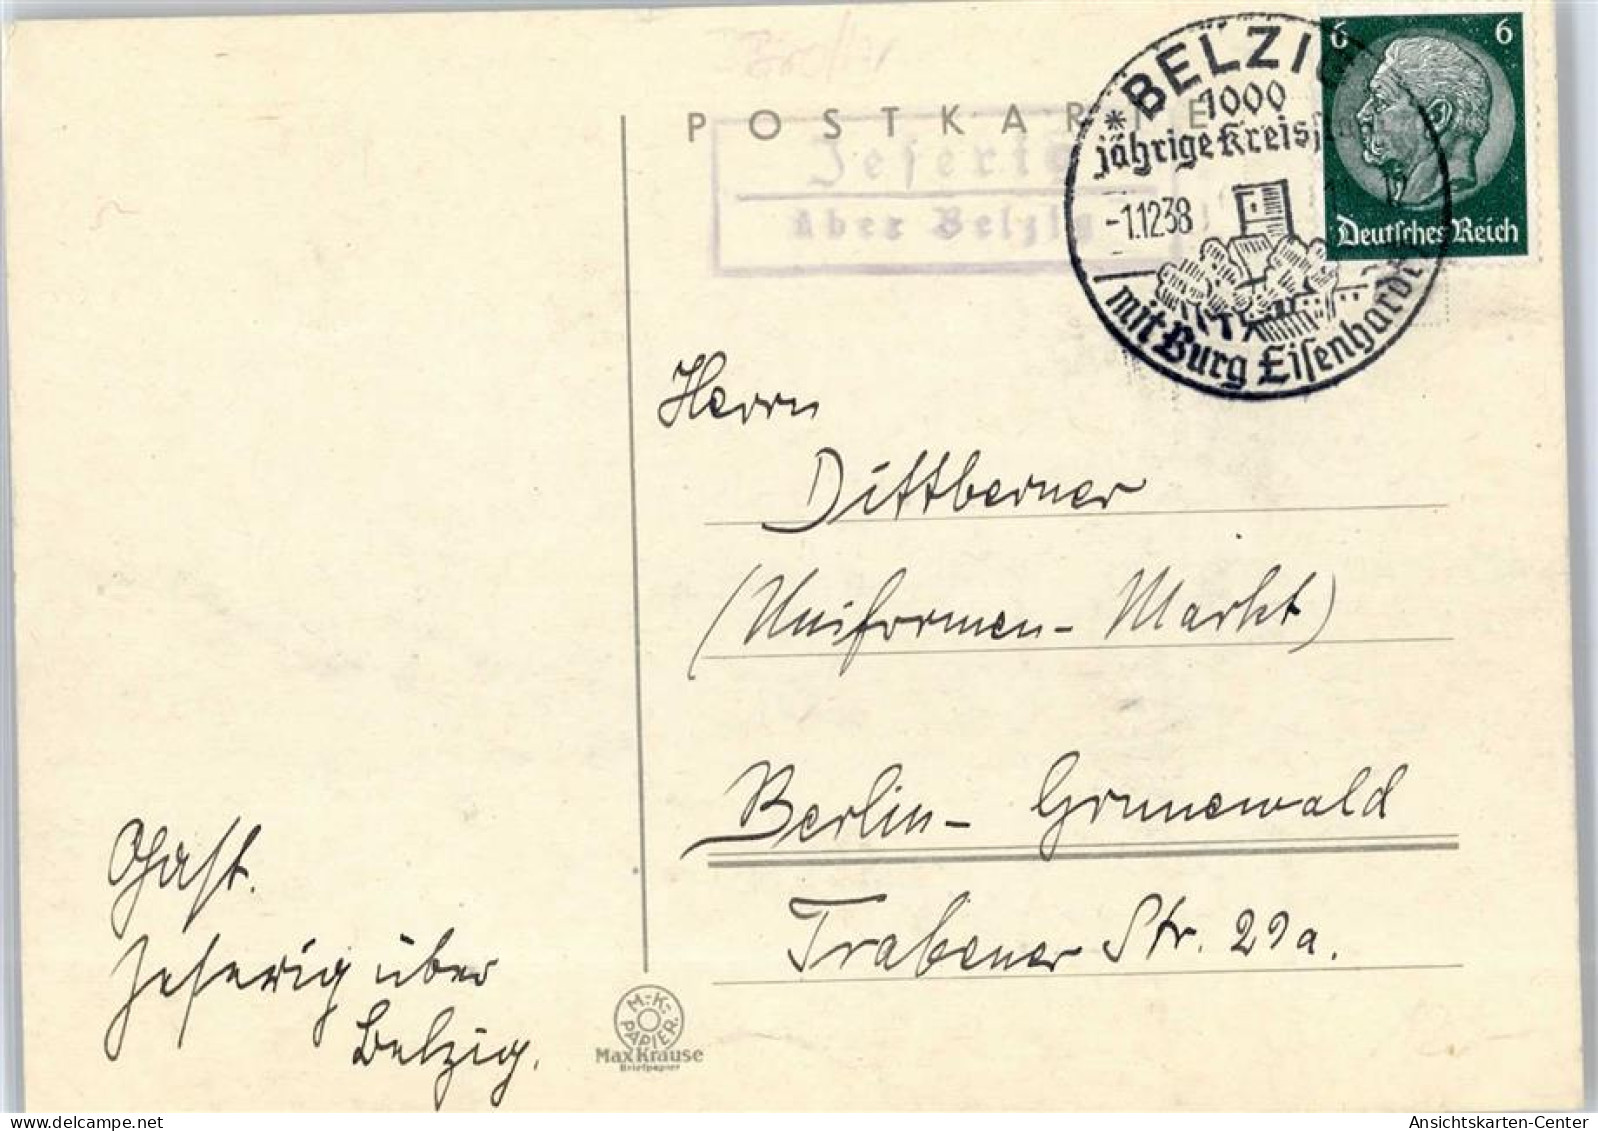 POSTKARTE
Jeserig
über Belzig
* BELZIG
1000
jährige Kreis
-1.12.38
mit Burg Eisenhardt
6 6
Deutsches Reich
Herrn
Dittberner
(Uniformen-Markt)
Berlin-Grunewald
Trabener Str. 29a.
Gast.
Jeserig über
Belzig.
M.-K.-
PAPIER.
Max Krause
Briefpapier
Ansichtskarten-Center